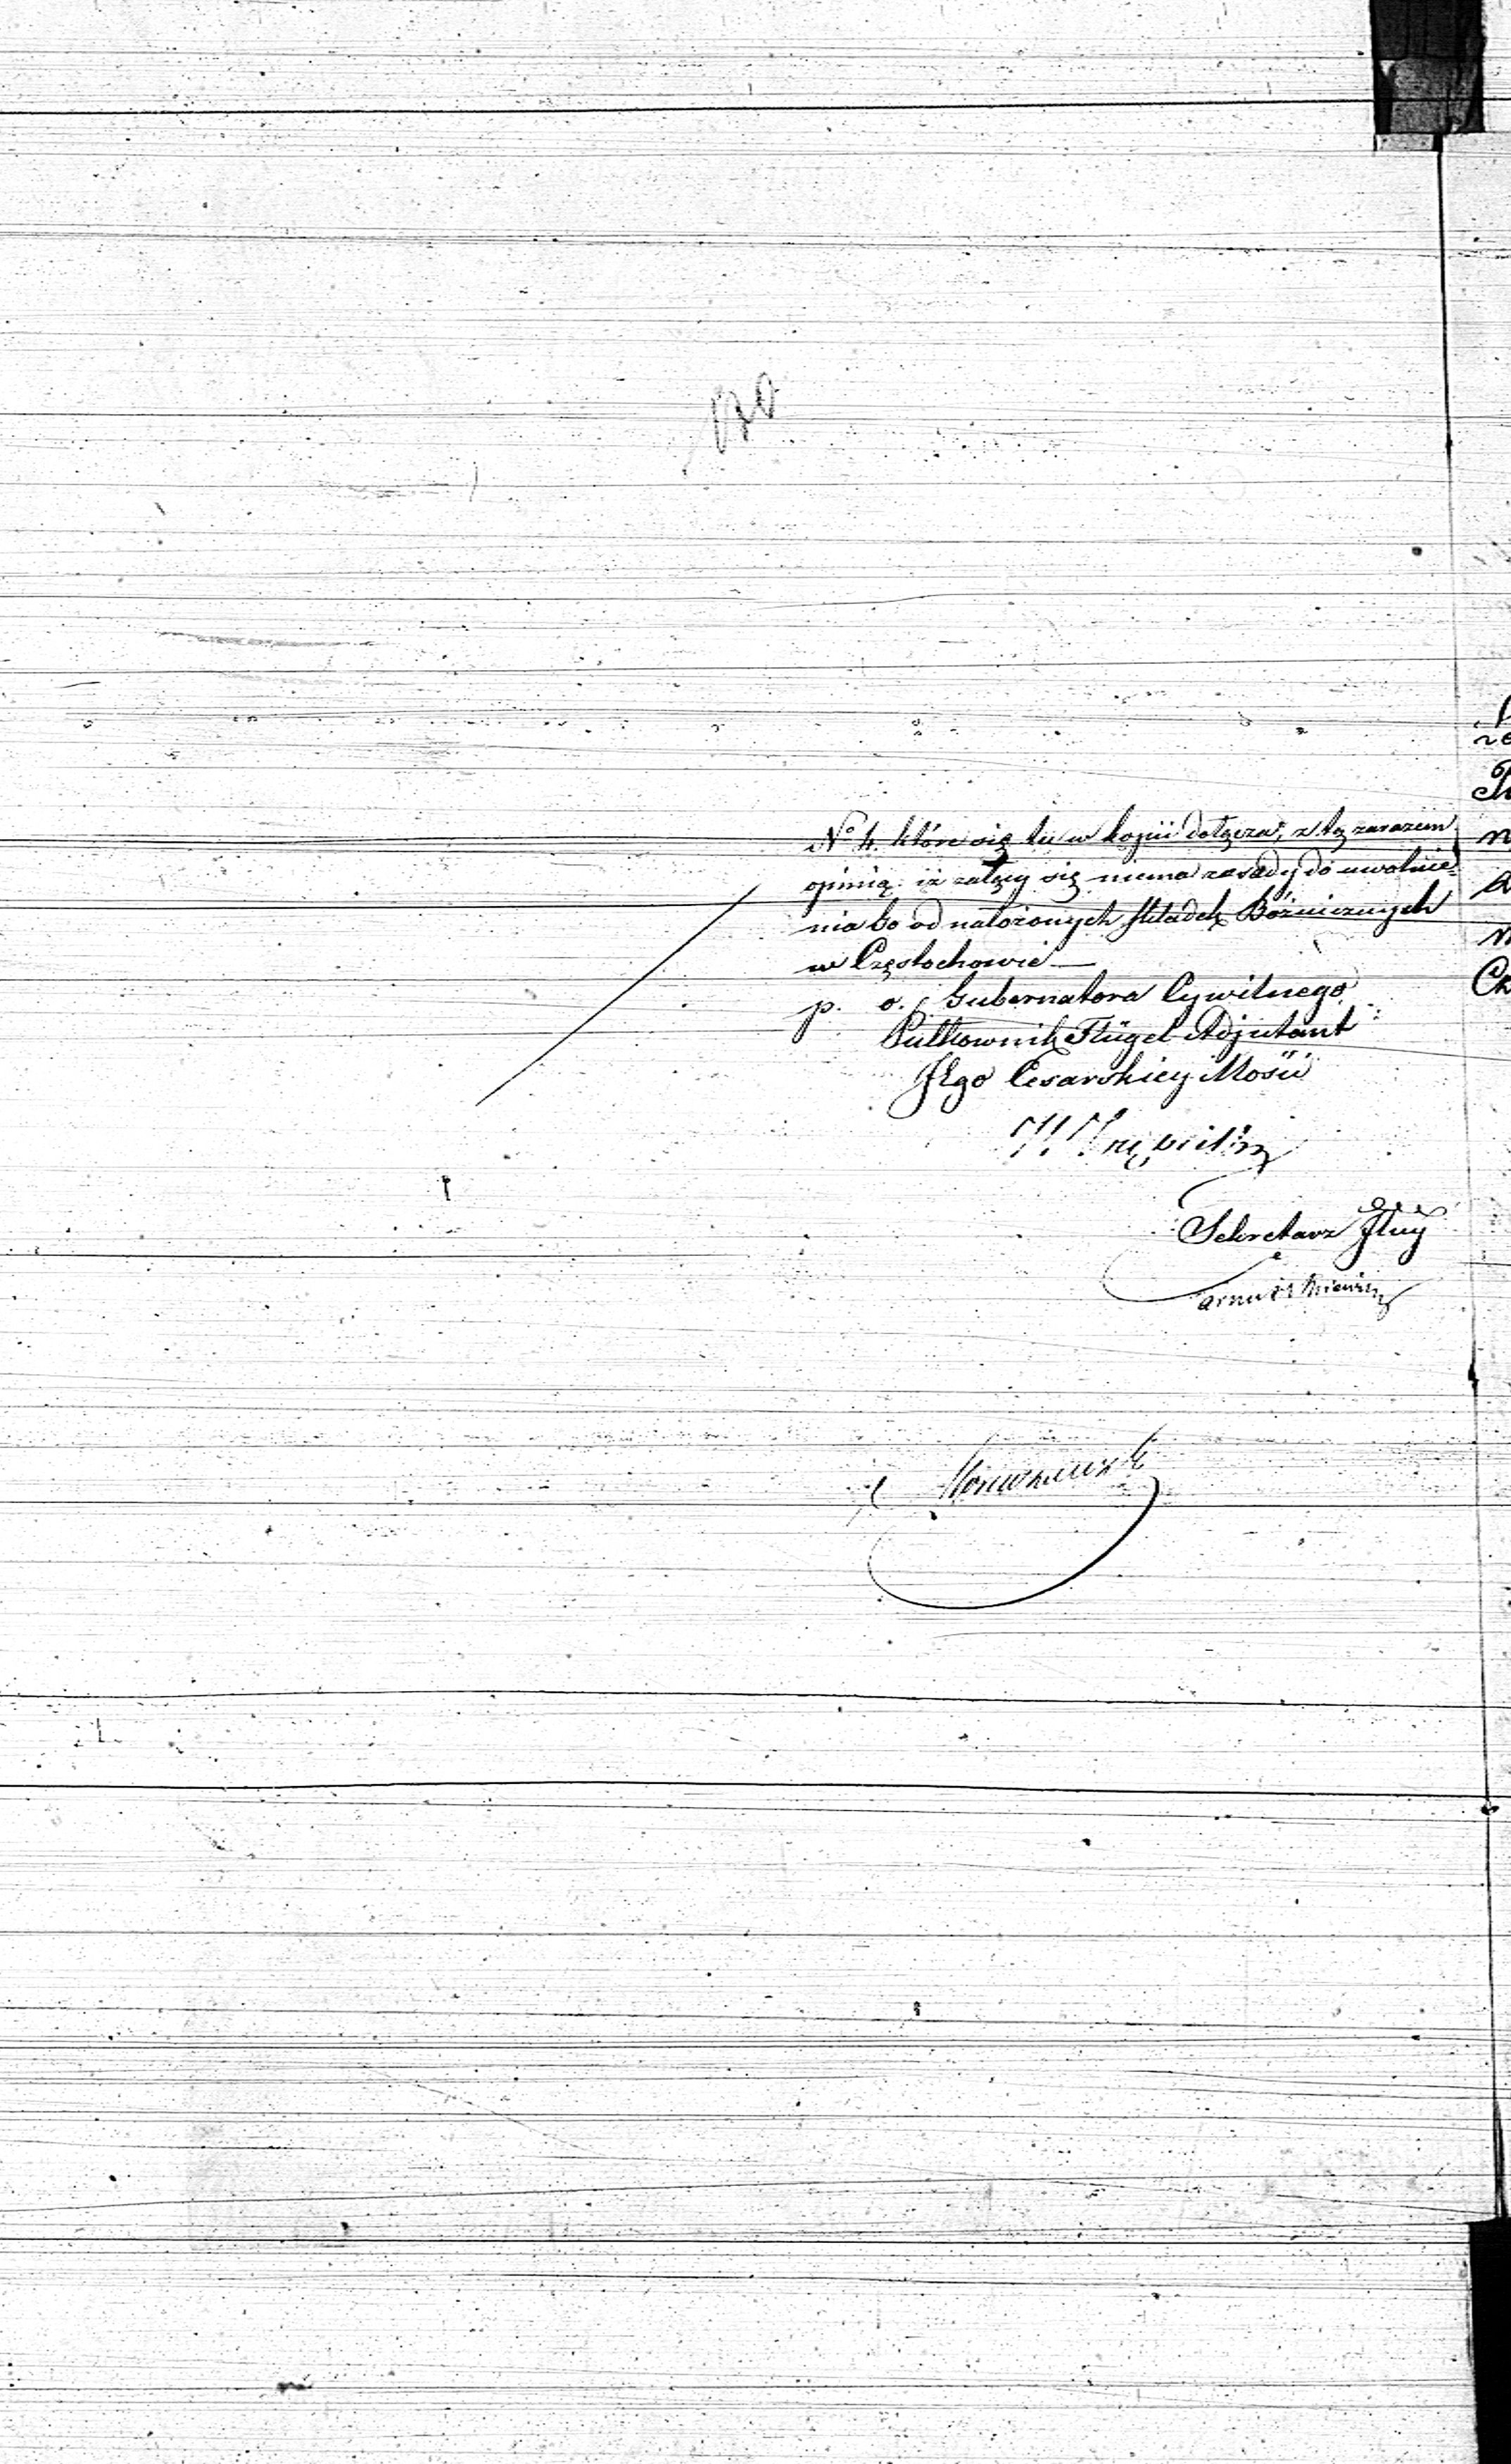 No 4. które się tu w kopii dołącza, z tą zarazem
opinią iż żalący się niema zasady do uwolnie=
nia Go od nałożonych składek Bóżniczných
w Częstochowie —
p. o. Gubernatora Cywilnego
Pułkownik Flügel Adjutant
Jego Cesarskiey Mości
Sekretarz Jlny